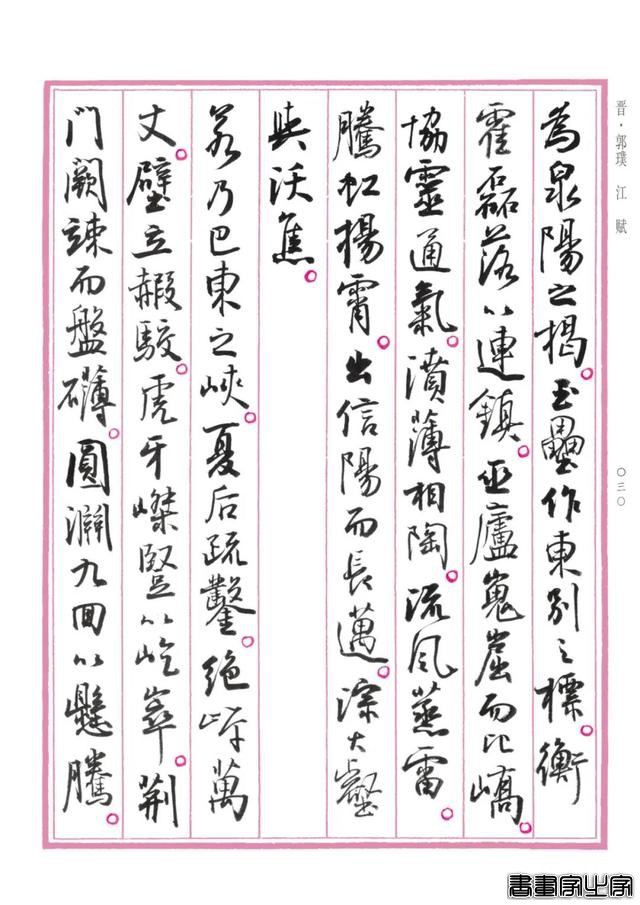 晋·郭璞 江赋
○三○
為泉陽之揭。玉壘作東別之標。衡
霍磊落以連鎮。巫廬嵬崫而比嶠。
協靈通氣。濆薄相陶。流風蒸雷。
騰虹揚霄。出信陽而長邁。淙大壑
與沃焦。
若乃巴東之峽。夏后疏鑿。絕岸萬
丈。壁立赮駮。虎牙嵥豎以屹崒。荊
門闕竦而盤礴。圓淵九回以懸騰。